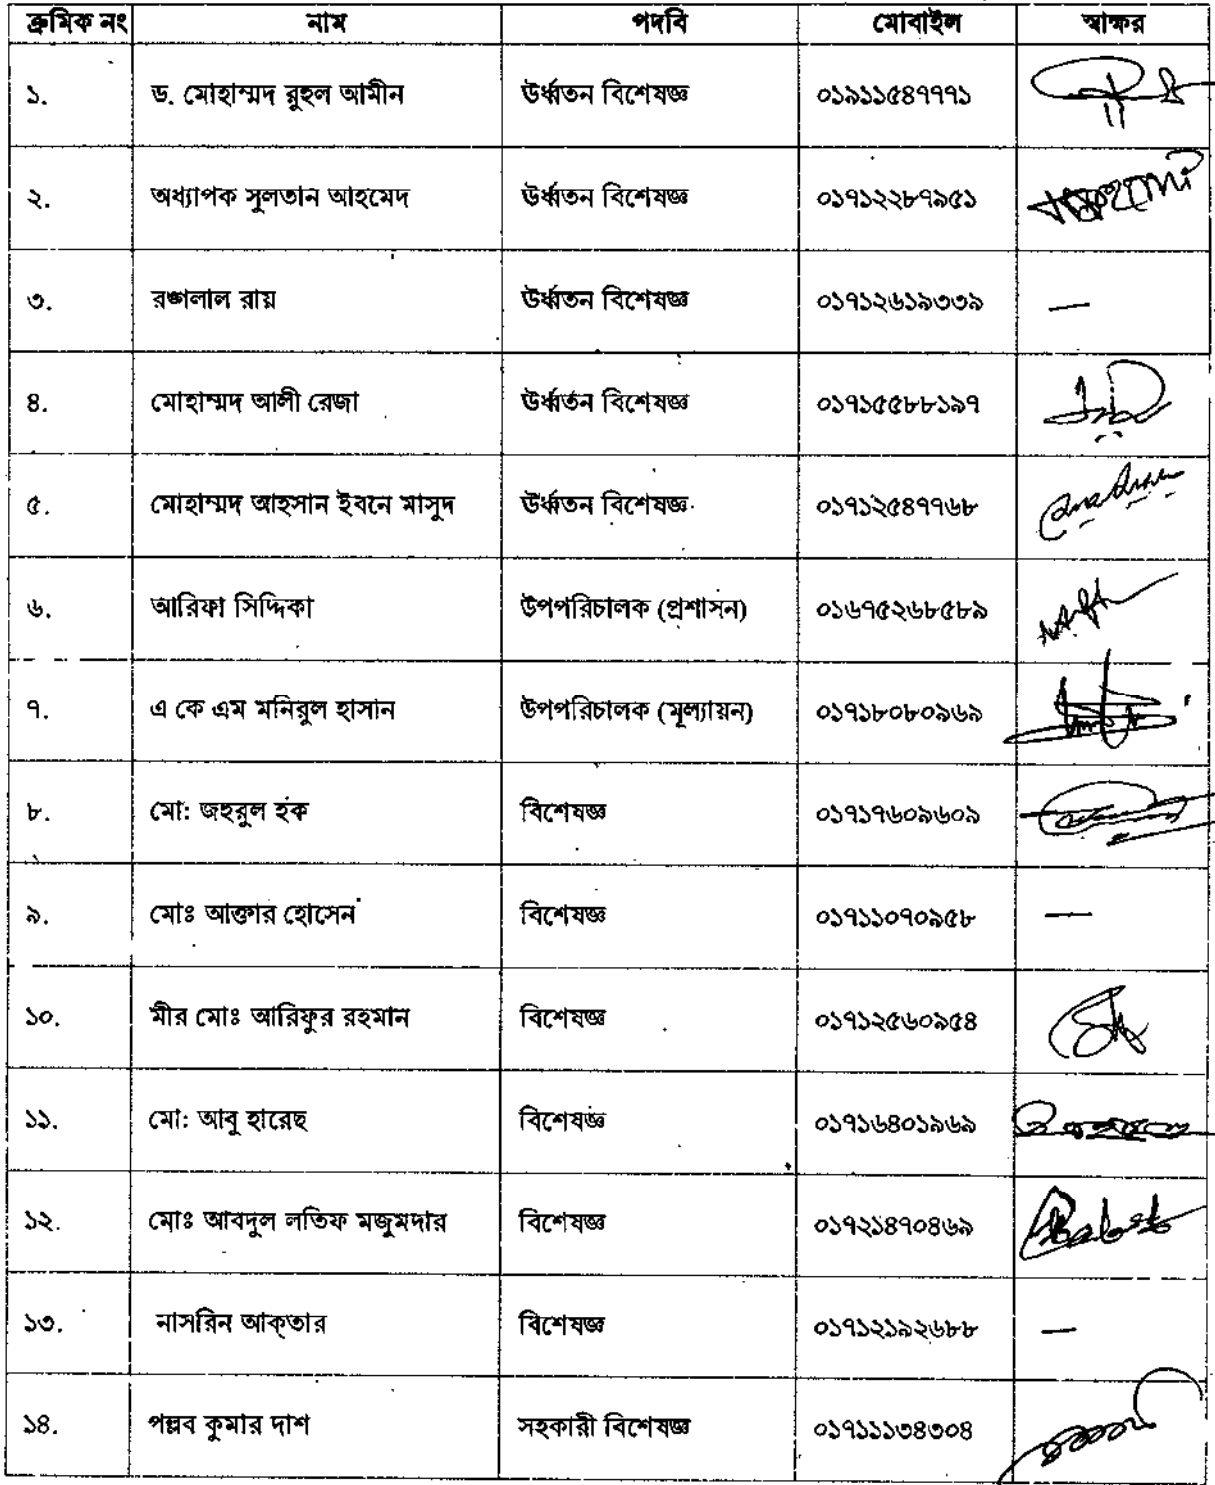 ক্রমিক নং নাম পদবি মোবাইল স্বাক্ষর
১. ড. মোহাম্মদ রুহুল আমীন উর্ধ্বতন বিশেষজ্ঞ ০১৯১১৫৪৭৭৭১
২. অধ্যাপক সুলতান আহমেদ উর্ধ্বতন বিশেষজ্ঞ ০১৭১২২৮৭৯৫১
৩. রঙ্গলাল রায় উর্ধ্বতন বিশেষজ্ঞ ০১৭১২৬১৯৩৩৯ —
৪. মোহাম্মদ আলী রেজা উর্ধ্বতন বিশেষজ্ঞ ০১৭১৫৫৮৮১৯৭
৫. মোহাম্মদ আহসান ইবনে মাসুদ উর্ধ্বতন বিশেষজ্ঞ ০১৭১২৫৪৭৭৬৮
৬. আরিফা সিদ্দিকা উপপরিচালক (প্রশাসন) ০১৬৭৫২৬৮৫৮৯
৭. এ কে এম মনিরুল হাসান উপপরিচালক (মূল্যায়ন) ০১৭১৮০৮০৯৬৯
৮. মো: জহুরুল হক বিশেষজ্ঞ ০১৭১৭৬০৯৬০৯
৯. মোঃ আক্তার হোসেন বিশেষজ্ঞ ০১৭১১০৭০৯৫৮ —
১০. মীর মোঃ আরিফুর রহমান বিশেষজ্ঞ ০১৭১২৫৬০৯৫৪
১১. মো: আবু হারেছ বিশেষজ্ঞ ০১৭১৬৪০১৯৬৯
১২. মোঃ আবদুল লতিফ মজুমদার বিশেষজ্ঞ ০১৭২১৪৭০৪৬৯
১৩. নাসরিন আক্‌তার বিশেষজ্ঞ ০১৭১২১৯২৬৮৮ —
১৪. পল্লব কুমার দাশ সহকারী বিশেষজ্ঞ ০১৭১১১৩৪৩০৪